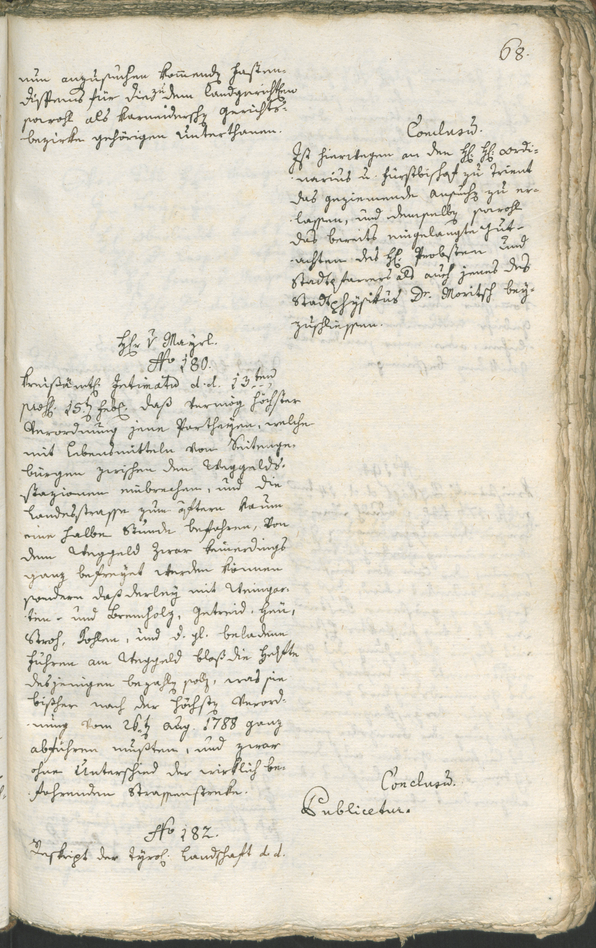 68.
nun anzusuchen kom̅ende Fasten-
dispens für die zu dem Landgerichte
sowohl als Karneiderschen Gerichts-
bezirke gehörigen Unterthanen.
Conclusū.
Ist hierwegen an den HH. HH. Ordi-
narius u. Fürstbischof zu Trient
das geziemende Ansuchen zu er-
lassen, und demselben sowohl
das bereits eingelangte Gut-
achten des HH. Probsten und
Stadtpfarrers als auch jenes des
Stadtphysikus Dr. Moritsch bey-
zuschliessen.
Hhr v Mayrl.
No 180.
Kreisämtl. Intimatū d. d. 13ten
15tn Feb. daß vermög höchster
Verordnung jene Partheyen, welche
mit Lebensmitteln von Seitenge-
bürgen zwischen den Weggelds-
stazionen einbrechen, und die
Landesstrasse zum öftern kaum
eine halbe Stunde befahren, von
dem Weggeld zwar keinerdings
ganz befreyet werden können
sondern daß derley mit Weingar-
ten- und Brennholz, Getreid, Heu,
Stroh, Kohlen, und d. gl. beladene
Führen am Weggeld bloß die Helfte
desjenigen bezahlen sollen, was sie
bißher nach der höchsten Verord-
nung vom 26tn Aug. 1788 ganz
abführen mußten, und zwar
ohne Unterschied der wirklich be-
fahrenden Strassenstreke.
Conclusū.
Publicetur.
No 182.
Reskript der tyrol. Landschaft d. d.